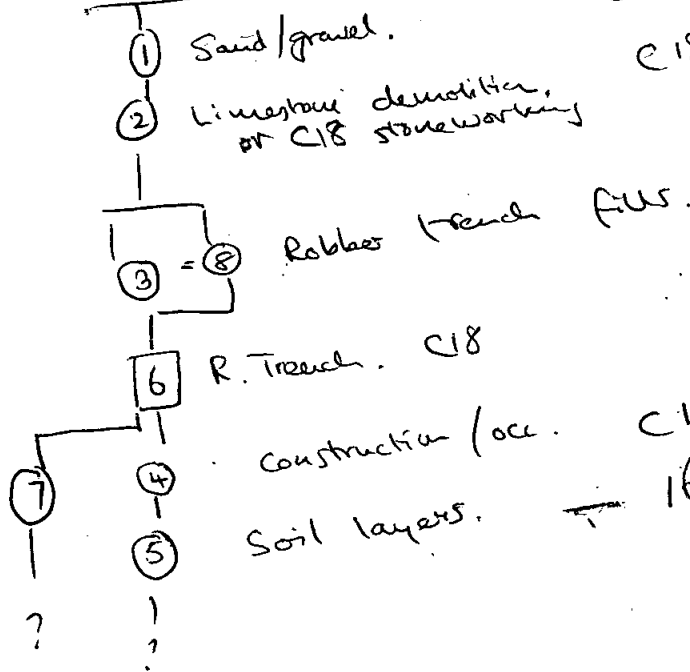 1 Sand/gravel. C18
2 Limestone demolition,
or C18 stoneworking
3 = 8 Robber trench fills.
6 R. Trench. C18
4 construction/occ. C1
7
5 Soil layers.
? ?